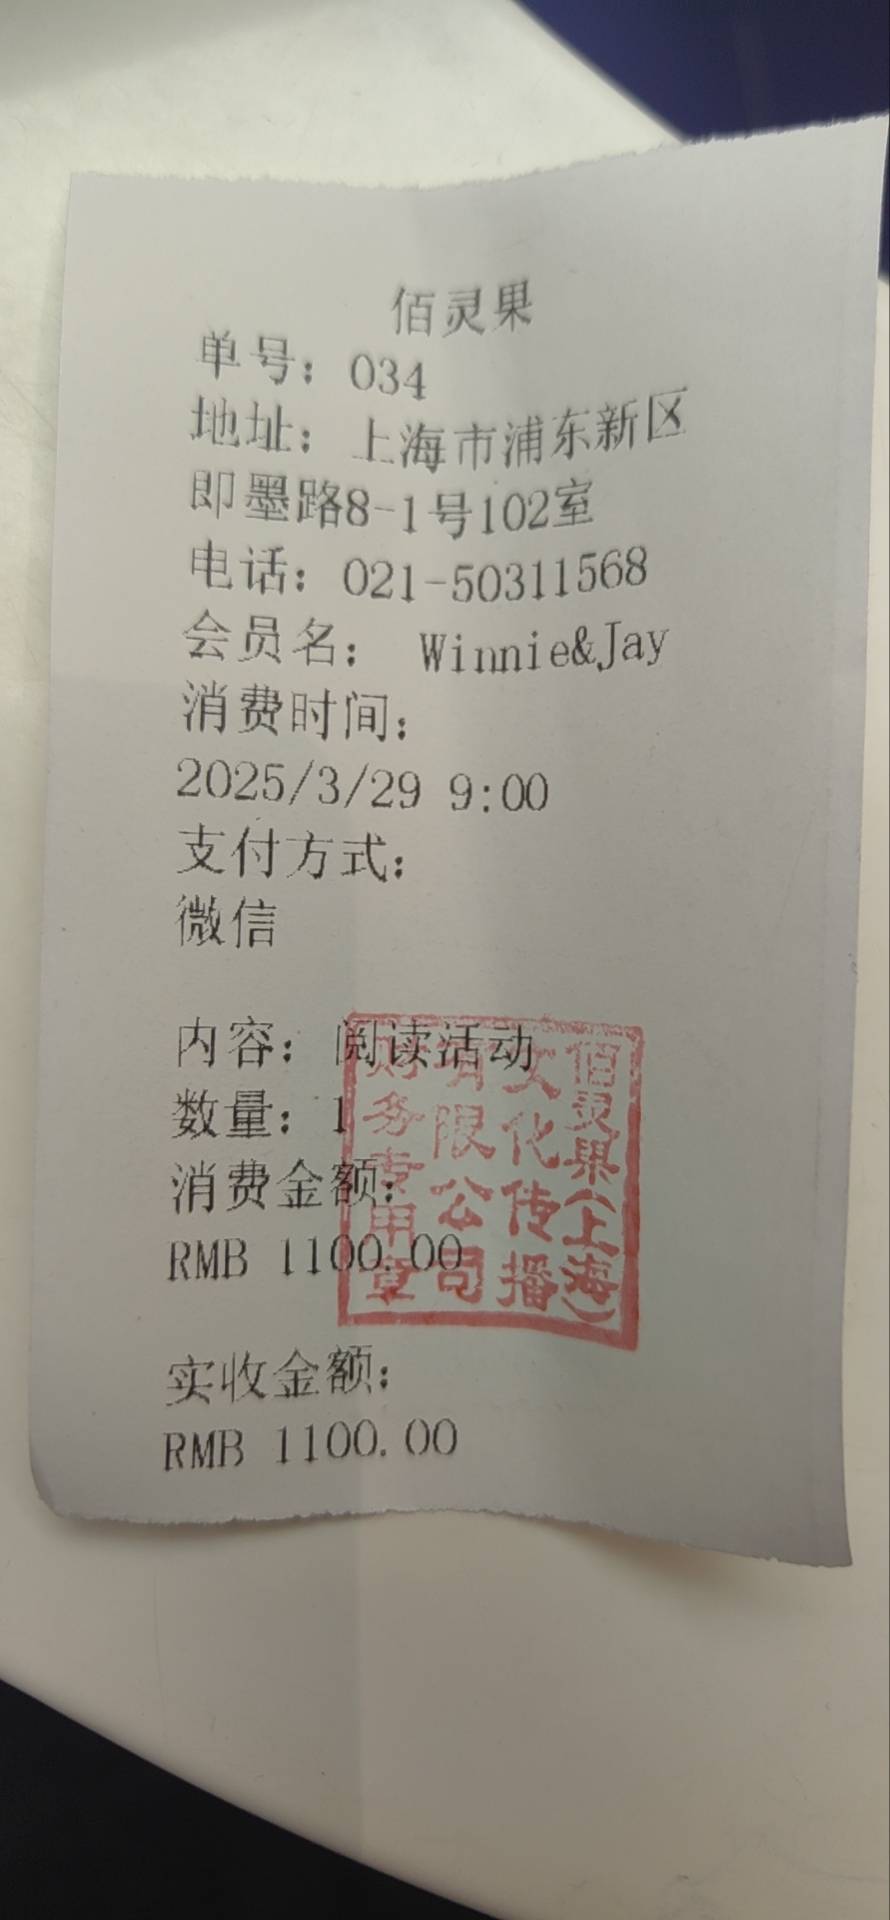 佰灵果
单号：034
地址：上海市浦东新区
即墨路8-1号102室
电话：021-50311568
会员名： Winnie&Jay
消费时间：
2025/3/29 9:00
支付方式：
微信
内容：阅读活动
数量：1
消费金额：
RMB 1100.00
实收金额：
RMB 1100.00
佰灵果（上海）
文化传播
有限公司
财务专用章